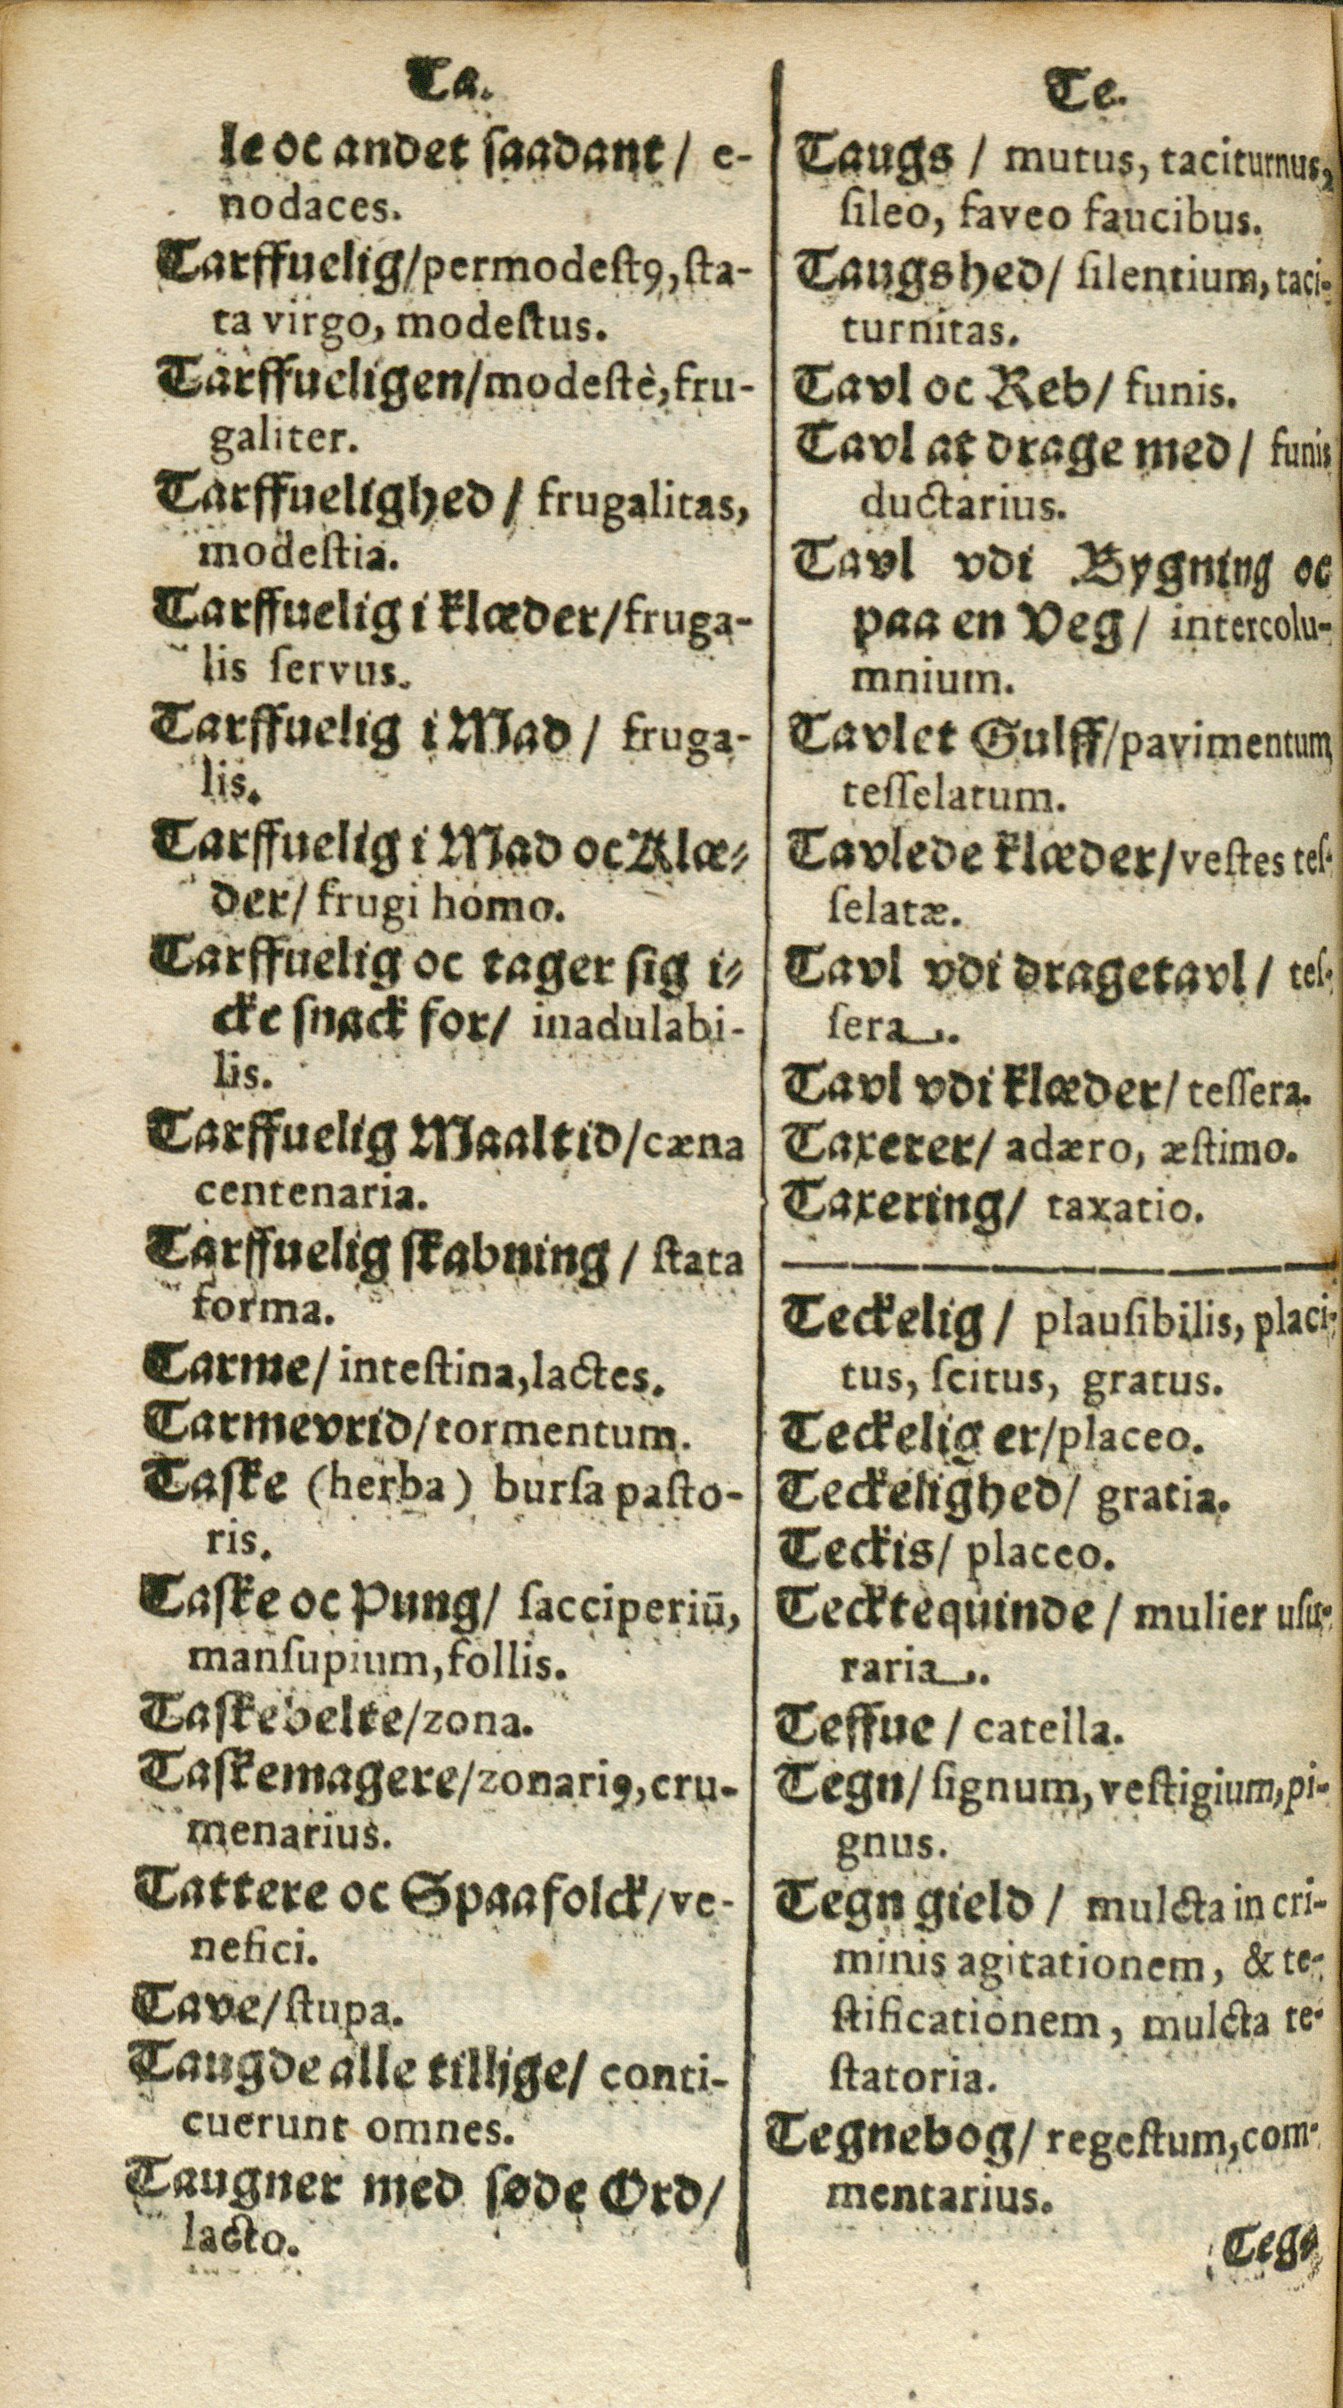 Ta.
le oc andet ſaadant / e-
nodaces.
Tarffuelig/permodeſtꝰ, ſta-
ta virgo, modeſtus.
Tarffueligen/modeſtè, fru-
galiter.
Tarffuelighed / frugalitas,
modeſtia.
Tarffuelig i klæder/fruga-
lis ſervus.
Tarffuelig i Mad / fruga-
lis.
Tarffuelig i Mad oc Klæ⸗
der/ frugi homo.
Tarffuelig oc tager ſig i⸗
cke ſnack for/ inadulabi-
lis.
Tarffuelig Maaltid/cæna
centenaria.
Tarffuelig ſkabning / ſtata
forma.
Tarme/ inteſtina, lactes.
Tarmevrid/tormentum.
Taſke (herba) burſa paſto-
ris.
Taſke oc Pung/ ſacciperiū,
manſupium, follis.
Taſkebelte/zona.
Taſkemagere/zonariꝰ, cru-
menarius.
Tattere oc Spaafolck/ve-
nefici.
Tave/ſtupa.
Taugde alle tillige/ conti-
cuerunt omnes.
Taugner med ſøde Ord/
lacto.
Te.
Taugs / mutus, taciturnus,
ſileo, faveo faucibus.
Taugshed/ ſilentium, taci-
turnitas.
Tavl oc Reb/ funis.
Tavl at drage med / funis
ductarius.
Tavl vdi Bygning oc
paa en Veg/ intercolu-
mnium.
Tavlet Gulff/pavimentum
teſſelatum.
Tavlede klæder/veſtes teſ-
ſelatæ.
Tavl vdi dragetavl / teſ-
ſera.
Tavl vdi klæder/ teſſera.
Taxerer/ adæro, æſtimo.
Taxering/ taxatio.
Teckelig / plauſibilis, placi-
tus, ſcitus, gratus.
Teckelig er/placeo.
Teckelighed/ gratia.
Teckis/ placeo.
Tecktequinde / mulier uſu-
raria.
Teffue / catella.
Tegn/ ſignum, veſtigium, pi-
gnus.
Tegn gield / mulcta in cri-
minis agitationem, & te-
ſtificationem, mulcta te-
ſtatoria.
Tegnebog/ regeſtum, com-
mentarius.
Tegn